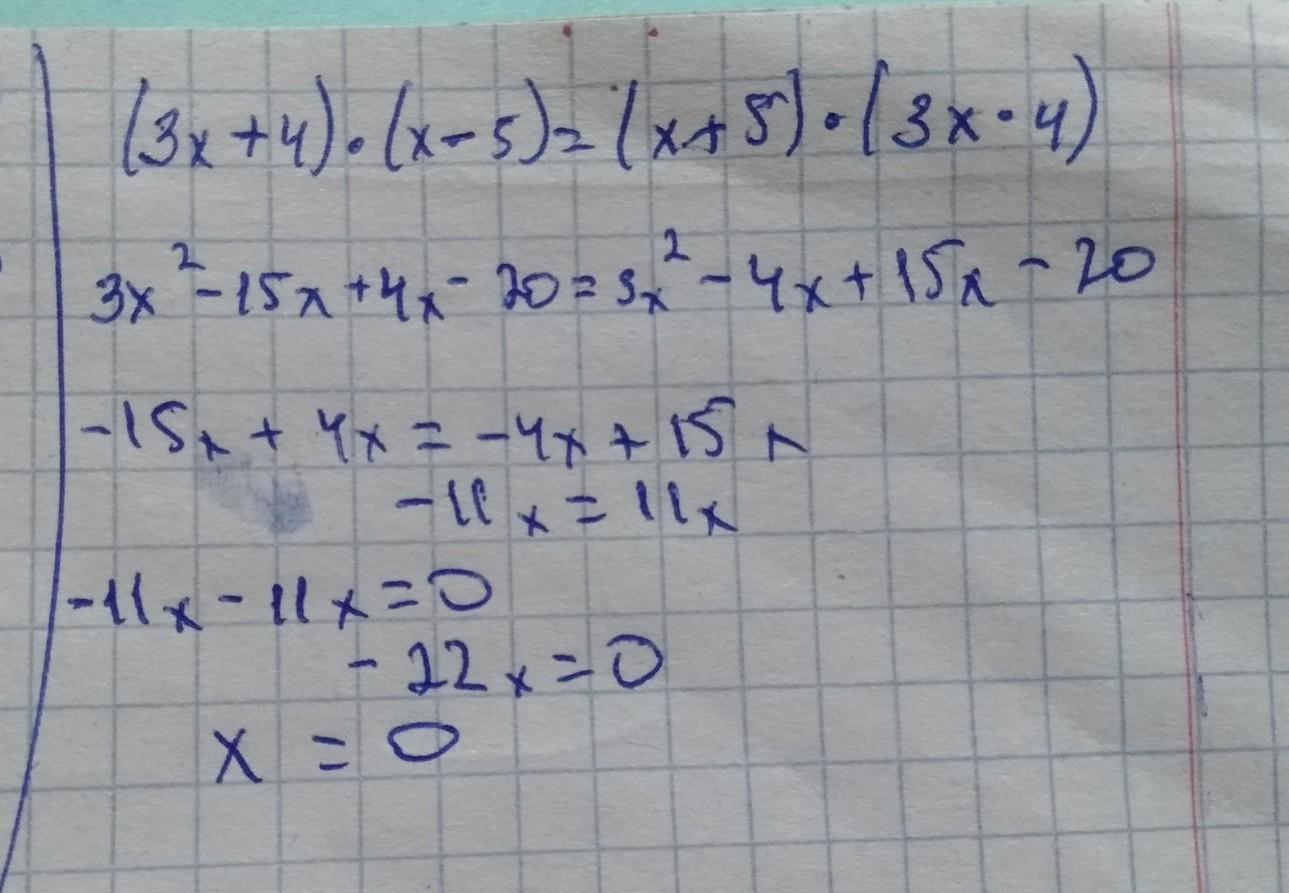 (3x+4)·(x-5)=(x+5)·(3x-4)
3x²-15x+4x-20=3x²-4x+15x-20
-15x+4x=-4x+15x
-11x=11x
-11x-11x=0
-22x=0
x=0